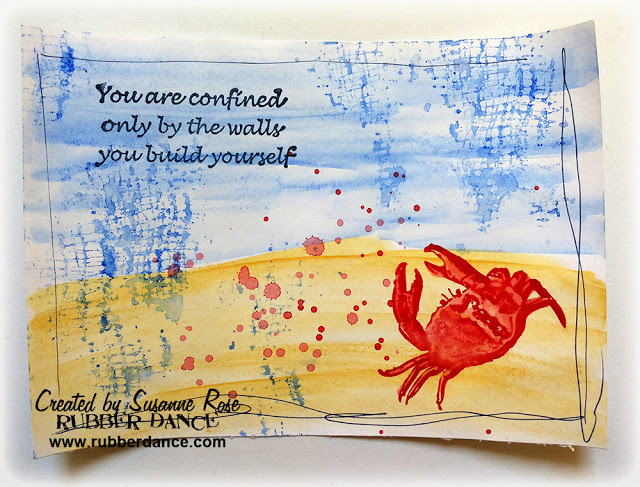 You are confined
only by the walls
you build yourself
Created by Susanne Rose
RUBBER DANCE
www.rubberdance.com